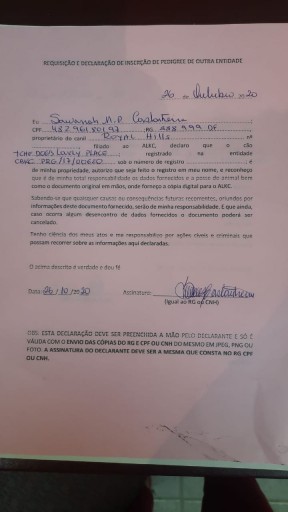 REQUISIÇÃO E DECLARAÇÃO DE INSCRIÇÃO DE PEDIGREE DE OUTRA ENTIDADE
26 de Outubro de 20
Eu
CPF RG
proprietário do canil ROYAL HILLS nº
filiado ao ALKC, declaro que o cão
registrado na entidade
sob o número de registro é
de minha propriedade, autorizo que seja feito o registro em meu nome, e reconheço
que é de minha total responsabilidade os dados fornecidos e a posse do animal bem
como o documento original em mãos, onde forneço a cópia digital para o ALKC.
Sabendo-se que qualquer causa ou consequências futuras recorrentes, oriundos por
informações deste documento fornecido, serão de minha responsabilidade. E que ainda,
caso ocorra algum desencontro de dados fornecidos o documento poderá ser
cancelado.
Tenho ciência dos meus atos e me responsabilizo por ações cíveis e criminais que
possam recorrer sobre as informações aqui declaradas.
O acima descrito é verdade e dou fé.
Data: 26/10/2020 Assinatura:
(Igual ao RG ou CNH)
OBS: ESTA DECLARAÇÃO DEVE SER PREENCHIDA A MÃO PELO DECLARANTE E SÓ É
VÁLIDA COM O ENVIO DAS CÓPIAS DO RG E CPF OU CNH DO MESMO EM JPEG, PNG OU
FOTO. A ASSINATURA DO DECLARANTE DEVE SER A MESMA QUE CONSTA NO RG CPF
OU CNH.